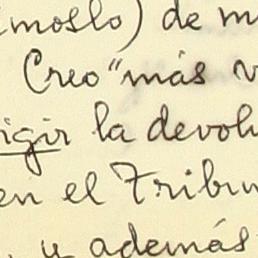 imoslo) de m
Creo "más v
igir la devolu
en el Tribun
, y además